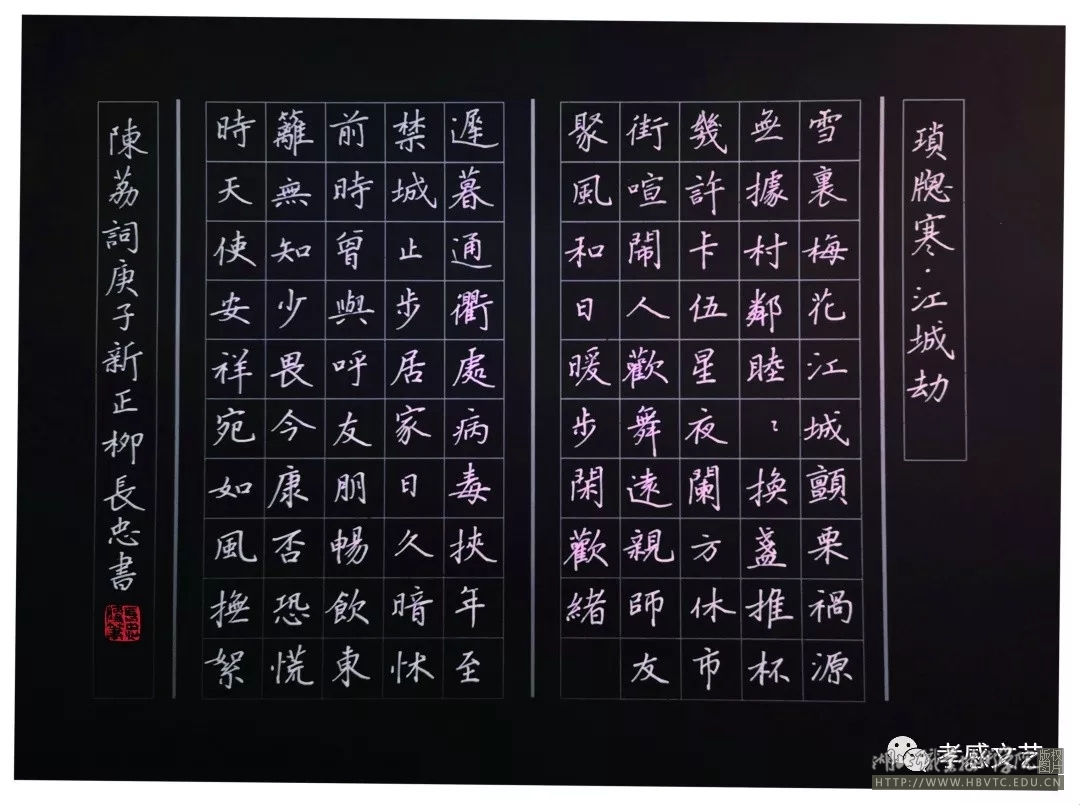 瑣牕寒·江城劫
雪裏梅花江城顫栗禍源
無據村鄰睦〻換盞推杯
幾許卡伍星夜闌方休市
街喧鬧人歡舞遠親師友
聚風和日暖步閑歡緒
遲暮通衢處病毒挾年至
禁城止步居家日久暗怵
前時曾與呼友朋暢飲東
籬無知少畏今康否恐慌
時天使安祥宛如風撫絮
陳荔詞庚子新正柳長忠書
孝感文艺
版权
图片
HTTP://WWW.HBVTC.EDU.CN